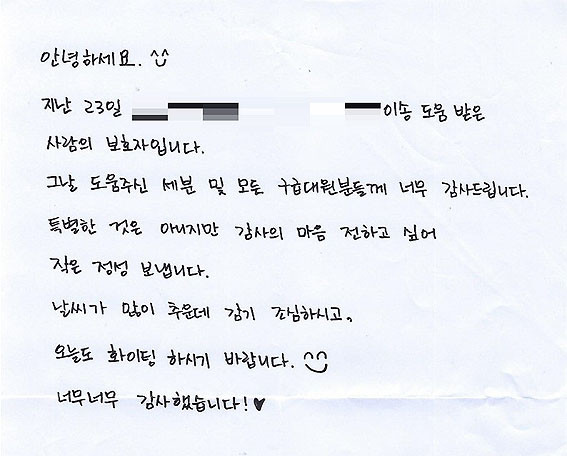 안녕하세요. ^^
지난 23일 이송 도움 받은
사람의 보호자입니다.
그날 도움주신 세분 및 모든 구급대원분들께 너무 감사드립니다.
특별한 것은 아니지만 감사의 마음 전하고 싶어
작은 정성 보냅니다.
날씨가 많이 추운데 감기 조심하시고,
오늘도 화이팅 하시기 바랍니다.
너무너무 감사했습니다!♥